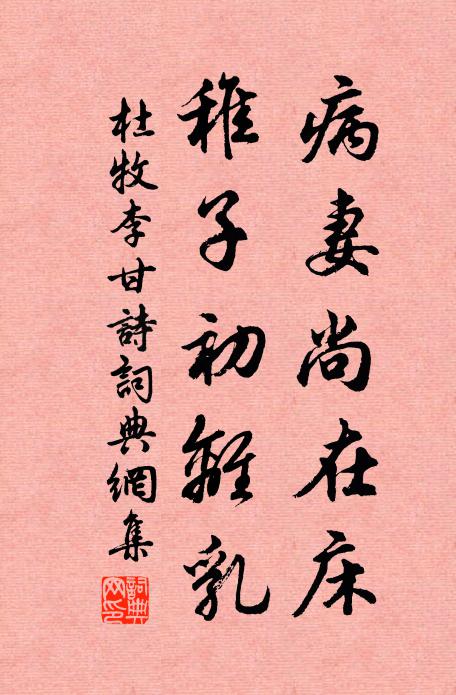 病妻尚在床
稚子初離乳
杜牧李甘詩詞典網集
詞典网印